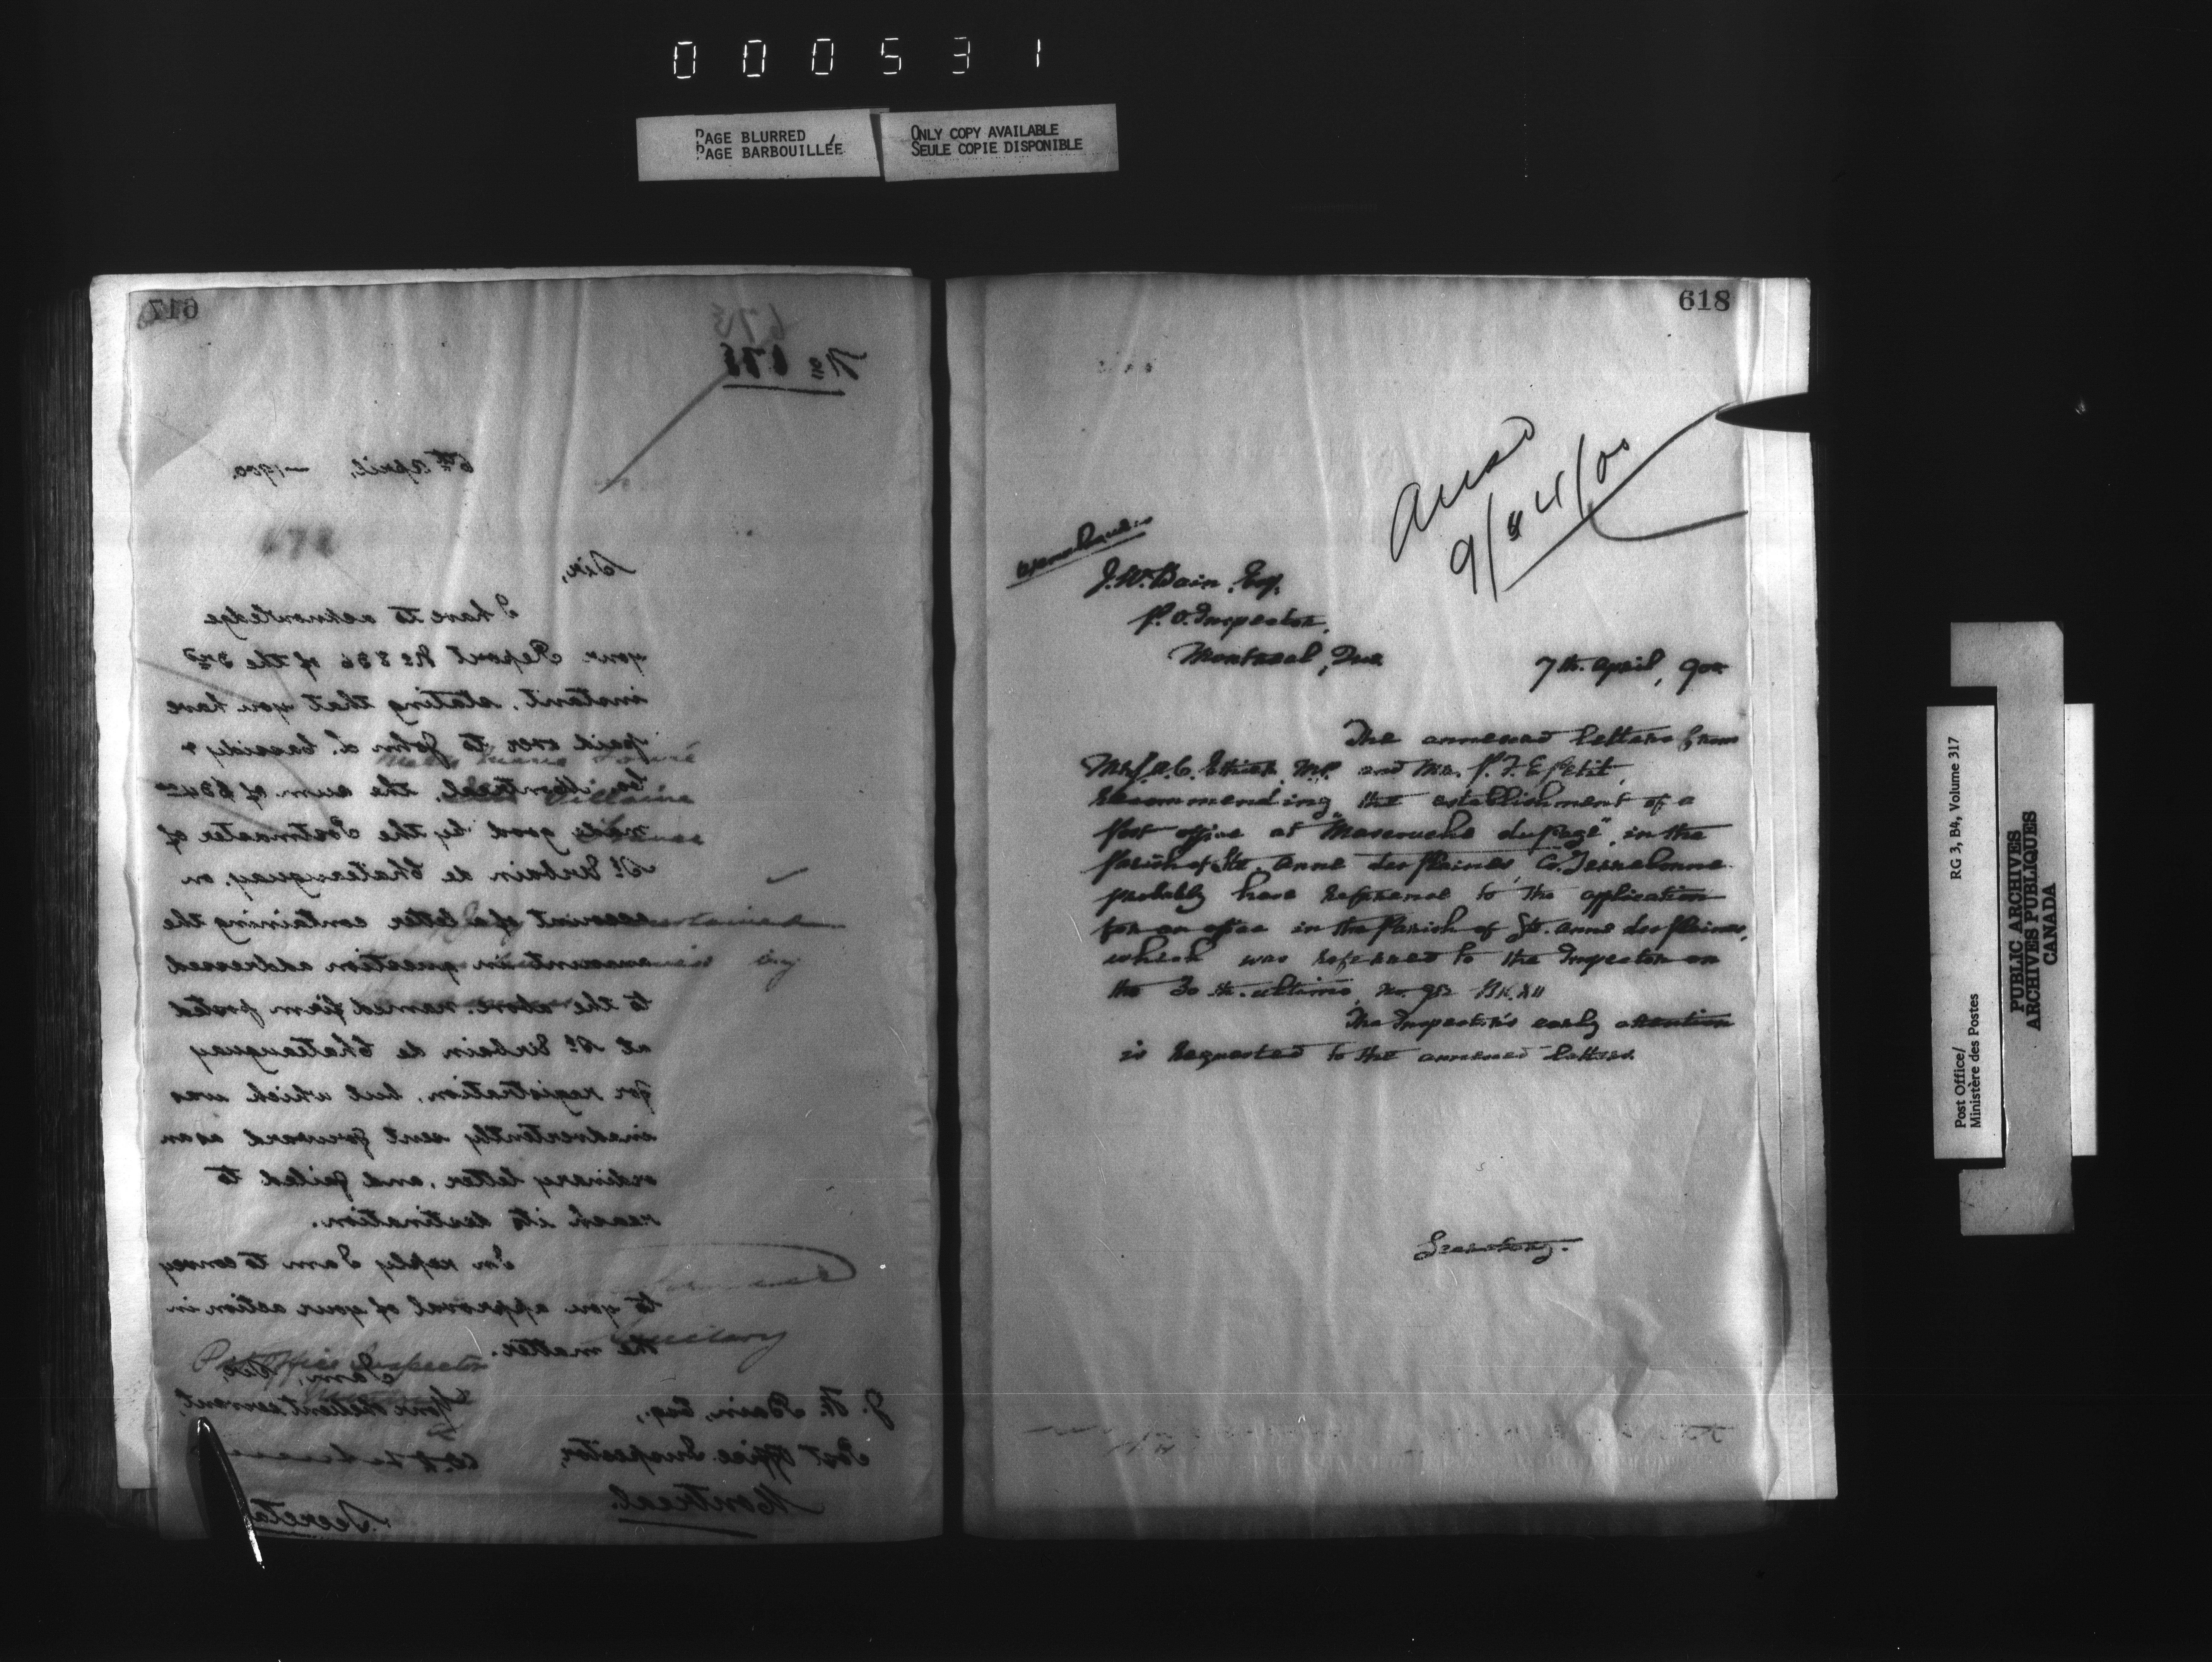 000531
PAGE BLURRED
PAGE BARBOUILLÉE
ONLY COPY AVAILABLE
SEULE COPIE DISPONIBLE
617
675
No 675
6th April, 1900.
Sir,
I have to acknowledge
your Report No 836 of the 3rd
instant, stating that you have
paid over to John L. Cassidy &
Co. Montreal, the sum of
made good by the Postmaster of
St Urbain de Chateauguay, on
account of a letter containing the
amount in question addressed
to the above named firm posted
at St Urbain de Chateauguay
for registration, but which was
inadvertently sent forward as an
ordinary letter, and failed to
reach its destination.
In reply I am to convey
to you approval of your action in
the matter.
I am, Sir,
Your obedient servant,
Secretary
J. W. Bain, Esq.,
Post Office Inspector,
Montreal.
618
Ansd
9/4/00
J. W. Bain, Esq.
P. O. Inspector,
Montreal, Que.
7th. April, 900
The annexed letters from
and Mr.
recommending the establishment of a
Post office at "Mascouche du Page", in the
Parish of Ste. Anne des Plaines, Co. Terrebonne
probably have reference to the application
for an office in the Parish of Ste. Anne des Plaines,
which was referred to the Inspector on
the 30 th. ultimo, No. 952 BK. XII
The Inspector's early attention
is requested to the annexed letters.
Secretary.
RG 3, B4, Volume 317
Post Office/
Ministère des Postes
PUBLIC ARCHIVES
ARCHIVES PUBLIQUES
CANADA